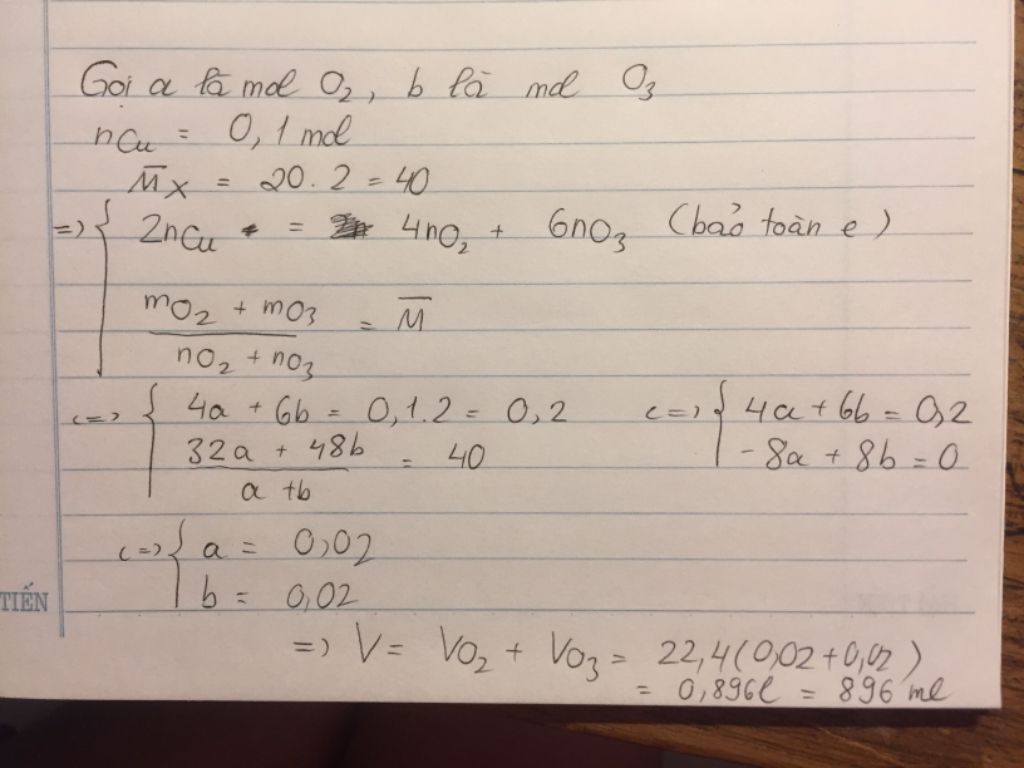 Gọi a là mol O₂, b là mol O₃
nCu = 0,1 mol
M̅x = 20.2 = 40
=> { 2nCu = 4nO₂ + 6nO₃ (bảo toàn e)
mO₂ + mO₃ / nO₂ + nO₃ = M̅
<=> { 4a + 6b = 0,1.2 = 0,2 <=> { 4a + 6b = 0,2
32a + 48b / a + b = 40 -8a + 8b = 0
<=> { a = 0,02
b = 0,02
TIẾN
=> V = VO₂ + VO₃ = 22,4(0,02+0,02)
= 0,896l = 896 ml